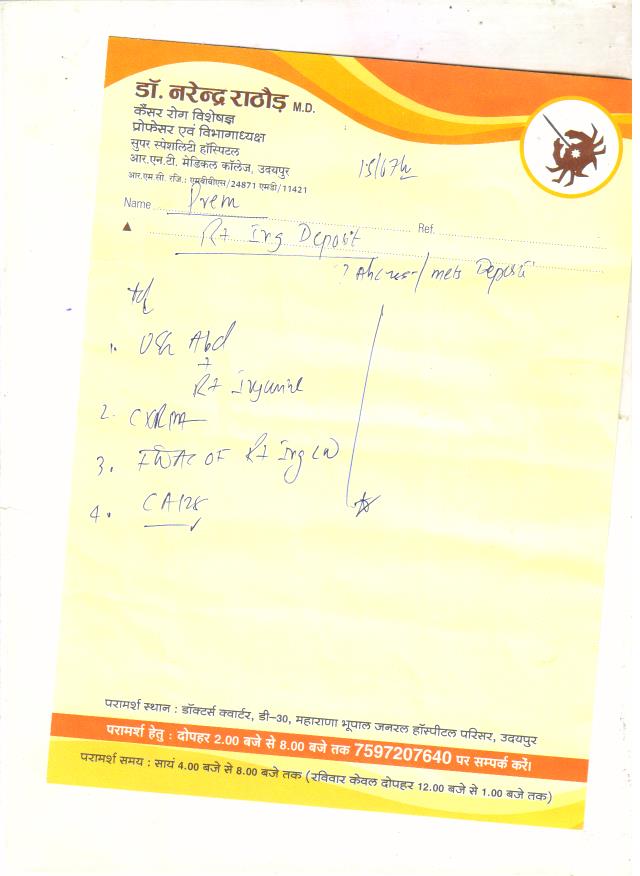 डॉ. नरेन्द्र राठौड़ M.D.
कैंसर रोग विशेषज्ञ
प्रोफेसर एवं विभागाध्यक्ष
सुपर स्पेशलिटी हॉस्पिटल
आर.एन.टी. मेडिकल कॉलेज, उदयपुर
आर.एम.सी. रजि.: एमबीबीएस/24871 एमडी/11421
Name Prem
Ref.
Rt Ing Deposit
? / mets Deposit
1. USG Abd
+
Rt Inguinal
2. CXR PA
3. FNAC OF Rt Ing LN
4. CA125
परामर्श स्थान : डॉक्टर्स क्वार्टर, डी-30, महाराणा भूपाल जनरल हॉस्पीटल परिसर, उदयपुर
परामर्श हेतु : दोपहर 2.00 बजे से 8.00 बजे तक 7597207640 पर सम्पर्क करें।
परामर्श समय : सायं 4.00 बजे से 8.00 बजे तक (रविवार केवल दोपहर 12.00 बजे से 1.00 बजे तक)